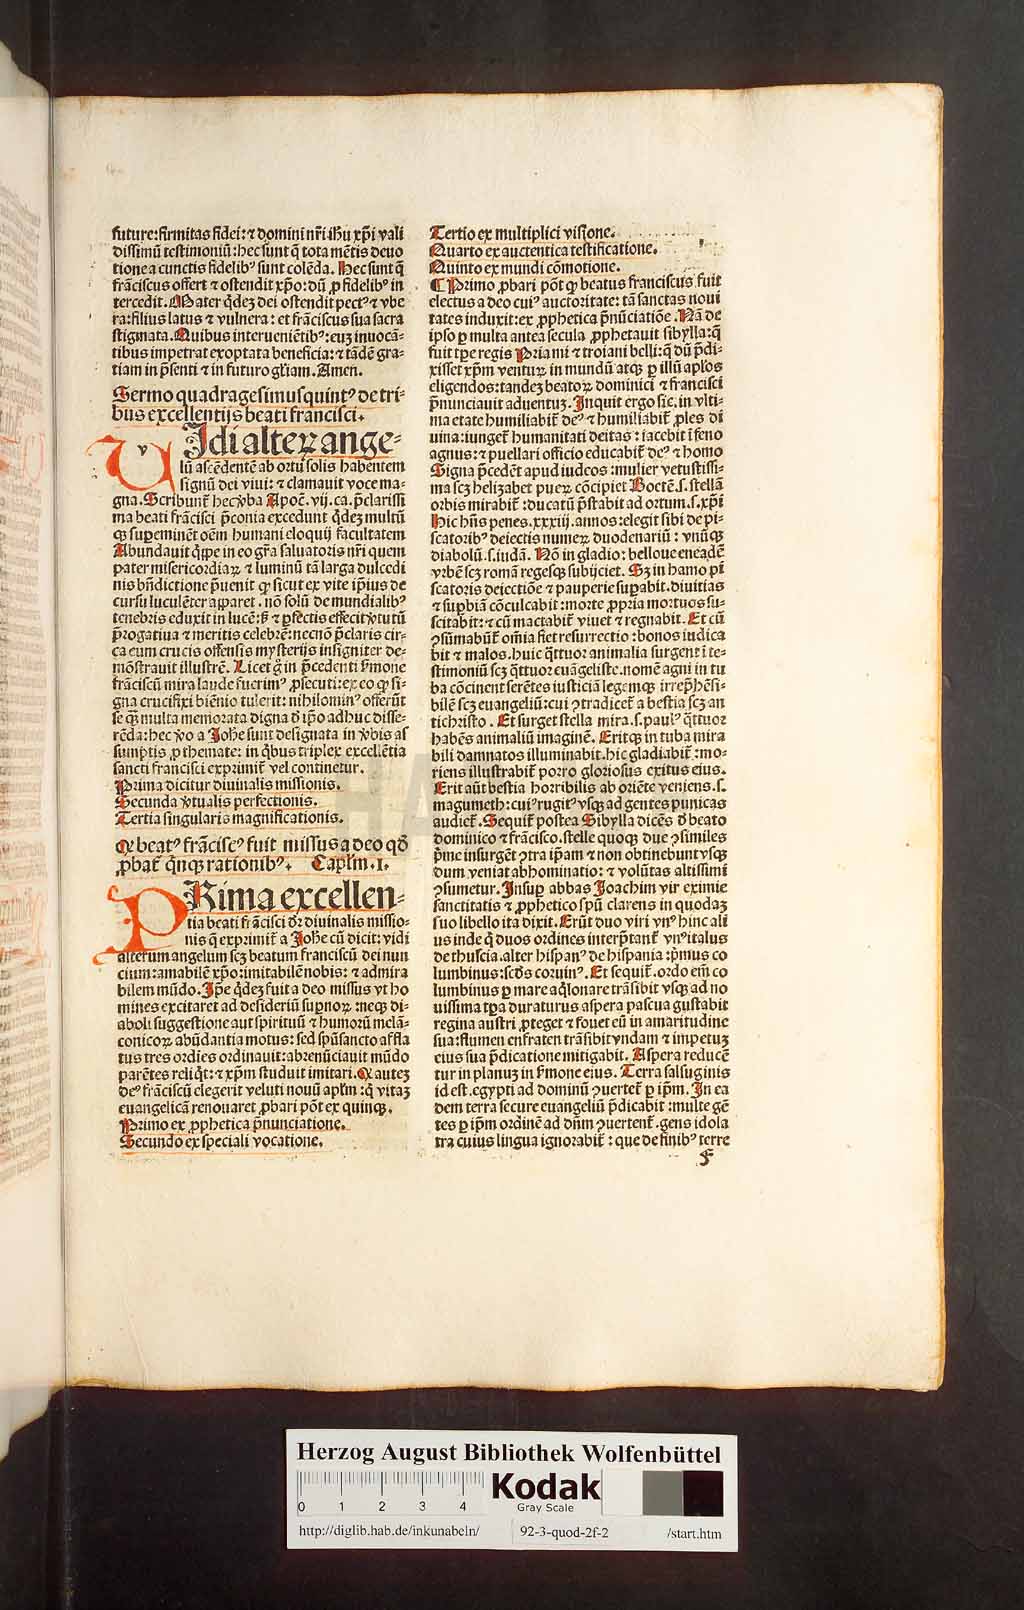 future:firmitas fidei:⁊ domini nr̄i ih̄u xp̄i vali
dissimū testimoniū:hec sunt q̄ tota mētis deuo
tione a cunctis fidelibꝰ sunt colēda. Hec sunt q̄
frāciscus offert ⁊ ostendit xp̄o:dū ꝓ fidelibꝰ in
tercedit. Mater q̄dez dei ostendit pectꝰ ⁊ vbe
ra:filius latus ⁊ vulnera: et frāciscus sua sacra
stigmata. Quibus interueniētibꝰ:euz inuocā-
tibus impetrat exoptata beneficia:⁊ tādē gra-
tiam in p̄senti ⁊ in futuro gl̄iam. Amen.
Sermo quadragesimusquintꝰ de tri-
bus excellentijs beati francisci.
v
VIdi alteꝝ ange-
lū ascēdentē ab ortu solis habentem
signū dei viui: ⁊ clamauit voce ma-
gna. Scribunt̄ hec v̄ba Apoc̄. vij. ca. p̄clarissi
ma beati frācisci p̄conia excedunt q̄dez multū
qꝫ suꝑeminēt oēm humani eloquij facultatem
Abundauit q̄ipe in eo gr̄a saluatoris nr̄i quem
pater misericordiaꝝ ⁊ luminū tā larga dulcedi
nis bn̄dictione p̄uenit ꝙ sicut ex vite ip̄ius de
cursu luculēter apparet. nō solū de mundialibꝰ
tenebris eduxit in lucē:sꝫ ⁊ ꝑfectis effecit v̄tutū
p̄rogatiua ⁊ meritis celebrē:necnō p̄claris cir-
ca eum crucis offensis mysterijs insigniter de-
mōstrauit illustrē. Licet g̊ in p̄cedenti ẜmone
frāciscū mira laude fuerimꝰ ꝓsecuti:ex eo ꝙ si-
gna crucifixi biēnio tulerit: nihilominꝰ offerūt
se qꝫ multa memorata digna d̄ ip̄o adhuc disse-
rēda:hec v̄o a Joh̄e sunt designata in v̄bis as
sumptis ꝓ themate: in q̄bus triplex excellētia
sancti francisci exprimit̄ vel continetur.
Prima dicitur diuinalis missionis.
Secunda v̄tualis perfectionis.
Tertia singularis magnificationis.
Q beatꝰ frāciscꝰ fuit missus a deo qd̄
ꝓbat̄ q̄nqꝫ rationibꝰ. Caplm̄.I.
PRima excellen-
tia beati frācisci dr̄ diuinalis missio-
nis q̄ exprimit̄ a Joh̄e cū dicit: vidi
alterum angelum scꝫ beatum franciscū dei nun
cium:amabilē xp̄o:imitabilē nobis: ⁊ admira
bilem mūdo. Ip̄e q̄dez fuit a deo missus vt ho
mines excitaret ad desideriū suꝑnoꝝ :neqꝫ di-
aboli suggestione aut spirituū ⁊ humorū melā-
conicoꝝ abūdantia motus: sed spūsancto affla
tus tres ordies ordinauit:abrenūciauit mūdo
parētes reliq̄t:⁊ xp̄m studuit imitari. Q autez
deꝰ frāciscū elegerit veluti nouū aplm̄ :q̄ vitaꝫ
euangelicā renouaret ꝓbari pōt ex quinqꝫ.
Primo ex ꝓphetica p̄nunciatione.
Secundo ex speciali vocatione.
Tertio ex multiplici visione.
Quarto ex auctentica testificatione.
Quinto ex mundi cōmotione.
¶ Primo ꝓbari pōt ꝙ beatus franciscus fuit
electus a deo cuiꝰ auctoritate: tā sanctas noui
tates induxit:ex ꝓphetica p̄nūciatiōe. Nā de
ipso ꝑ multa antea secula ꝓphetauit sibylla:q̄
fuit tp̄e regis Priami ⁊ troiani belli:q̄ dū p̄di-
xisset xp̄m ventuꝝ in mundū atqꝫ ꝑ illū apl̄os
eligendos:tandez beatoꝝ dominici ⁊ francisci
p̄nunciauit aduentuz. Inquit ergo sic. in vlti-
ma etate humiliabit̄ deꝰ ⁊ humiliabit̄ ꝓles di
uina:iunget̄ humanitati deitas : iacebit ī feno
agnus: ⁊ puellari officio educabit̄ deꝰ ⁊ homo
Signa p̄cedēt apud iudeos :mulier vetustissi-
ma scꝫ helizabet pueꝝ cōcipiet Boetē.s.stellā
orbis mirabit̄ :ducatū p̄stabit ad ortum.s.xp̄i
Hic hn̄s penes.xxxiij.annos:elegit sibi de pi-
scatoribꝰ deiectis numeꝝ duodenariū : vnūqꝫ
diabolū.s.iudā. Nō in gladio: belloue eneadē
vrbē scꝫ romā regesqꝫ subijciet. Sꝫ in hamo pi
scatoris deiectiōe ⁊ pauperie suꝑabit.diuitias
⁊ suꝑbiā cōculcabit :morte ꝓpria mortuos su-
scitabit :⁊ cū mactabit̄ viuet ⁊ regnabit. Et cū
ꝯsūmabūt̄ om̄ia fiet resurrectio :bonos iudica
bit ⁊ malos.huic q̄ttuor animalia surgent ī te-
stimoniū scꝫ q̄ttuor euāgeliste.nomē agni in tu
ba cōcinent serētes iusticiā legemqꝫ irrep̄hēsi-
bilē scꝫ euangeliū:cui ꝯtradicet̄ a bestia scꝫ an
tichristo . Et surget stella mira.s.paulꝰ q̄ttuor
habēs animaliū imaginē. Eritqꝫ in tuba mira
bili damnatos illuminabit.hic gladiabit̄ :mo-
riens illustrabit̄ porro gloriosus exitus eius.
Erit aūt bestia horribilis ab oriēte veniens.s.
magumeth:cuiꝰrugitꝰ vsqꝫ ad gentes punicas
audiet̄. Sequit̄ postea Sibylla dicēs d̄ beato
dominico ⁊ frācisco.stelle quoqꝫ due ꝯsimiles
p̄me insurgēt ꝯtra ip̄am ⁊ non obtinebunt vsqꝫ
dum veniat abhominatio: ⁊ volūtas altissimi
ꝯsumetur. Insuꝑ abbas Joachim vir eximie
sanctitatis ⁊ ꝓphetico spū clarens in quodaꝫ
suo libello ita dixit. Erūt duo viri vnꝰ hinc ali
us inde q̄ duos ordines interp̄tant̄ vnꝰ italus
de thuscia.alter hispanꝰ de hispania :p̄mus co
lumbinus:scd̄s coruinꝰ. Et sequit̄.ordo em̄ co
lumbinus ꝑ mare aq̄lonare trāsibit vsqꝫ ad no
uissima tp̄a duraturus aspera pascua gustabit
regina austri ꝓteget ⁊ fouet eū in amaritudine
sua:flumen enfraten trāsibit vndam ⁊ impetuꝫ
eius sua p̄dicatione mitigabit. Aspera reducē
tur in planuz in ẜmone eius. Terra salsuginis
id est.egypti ad dominū ꝯuertet̄ ꝑ ip̄m. In ea
dem terra secure euangeliū p̄dicabit :multe gē
tes ꝑ ip̄m ordinē ad dn̄m ꝯuertent̄.gens idola
tra cuius lingua ignorabit̄ : que de finibꝰ terre
Herzog August Bibliothek Wolfenbüttel
0 1 2 3 4
Kodak
Gray Scale
http://diglib.hab.de/inkunabeln/ 92-3-quod-2f-2 /start.htm
HA